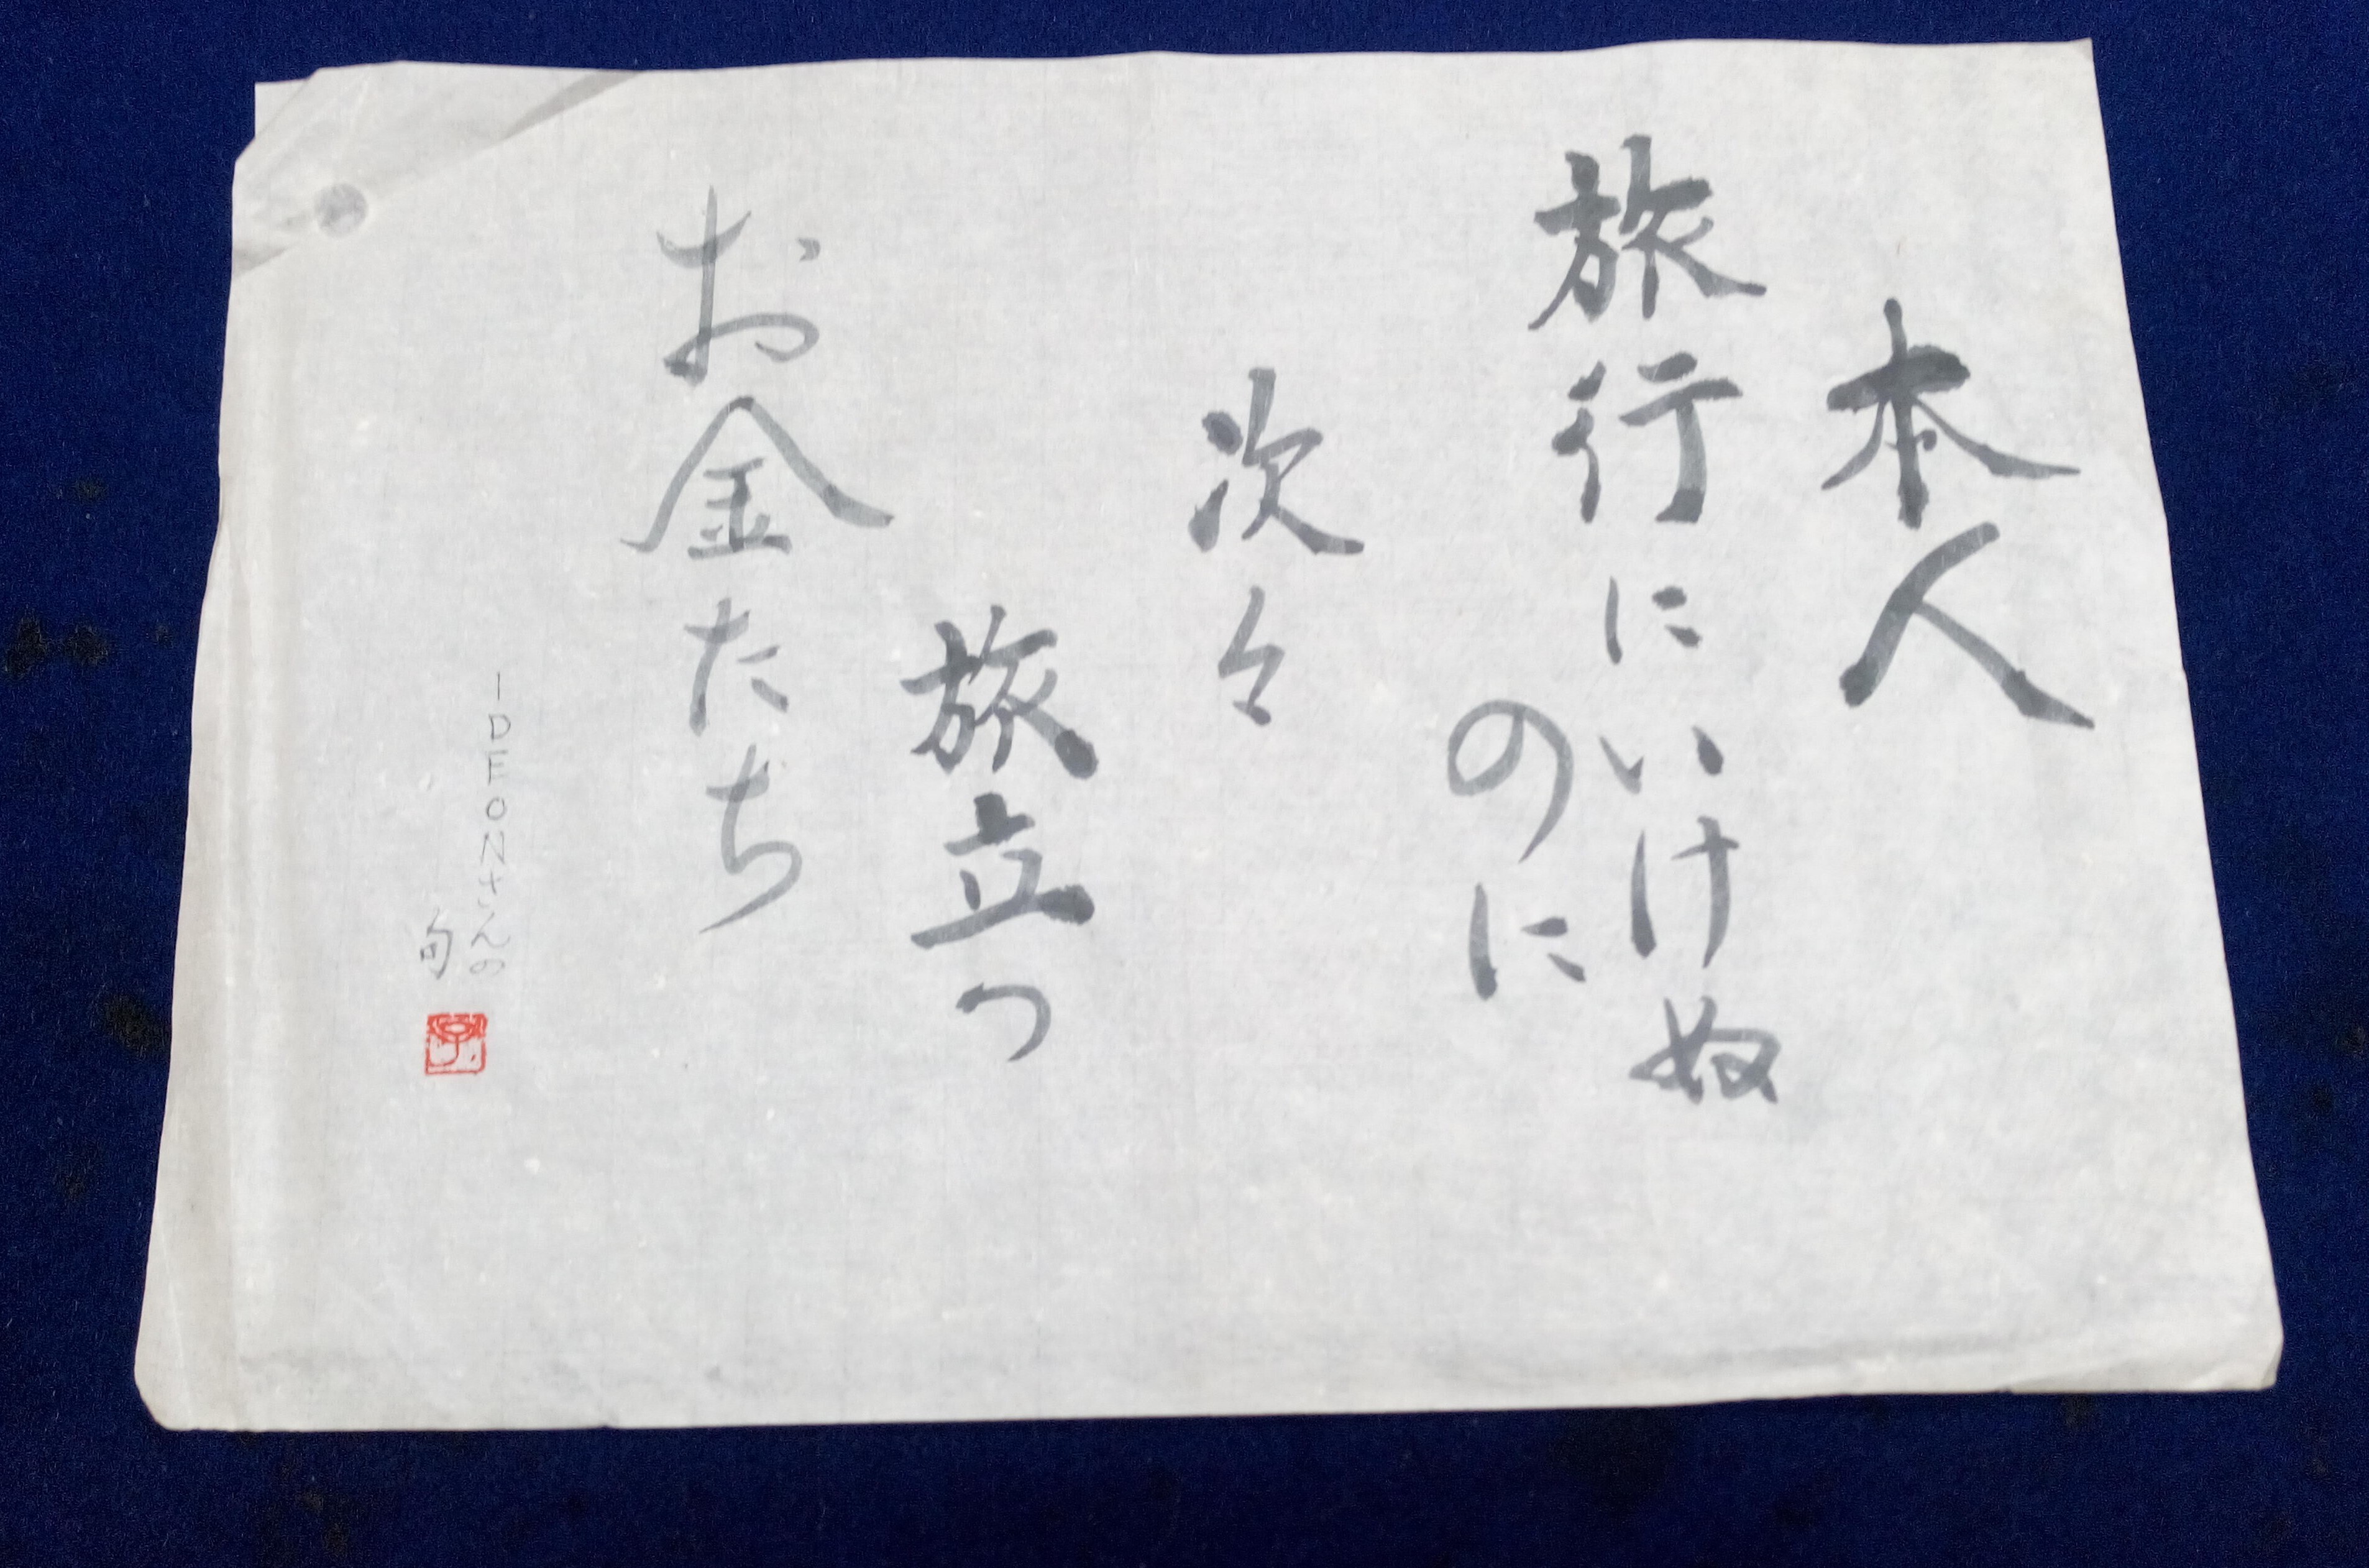 本人
旅行にいけぬ
のに
次々
旅立つ
お金たち
IDEONさんの
句